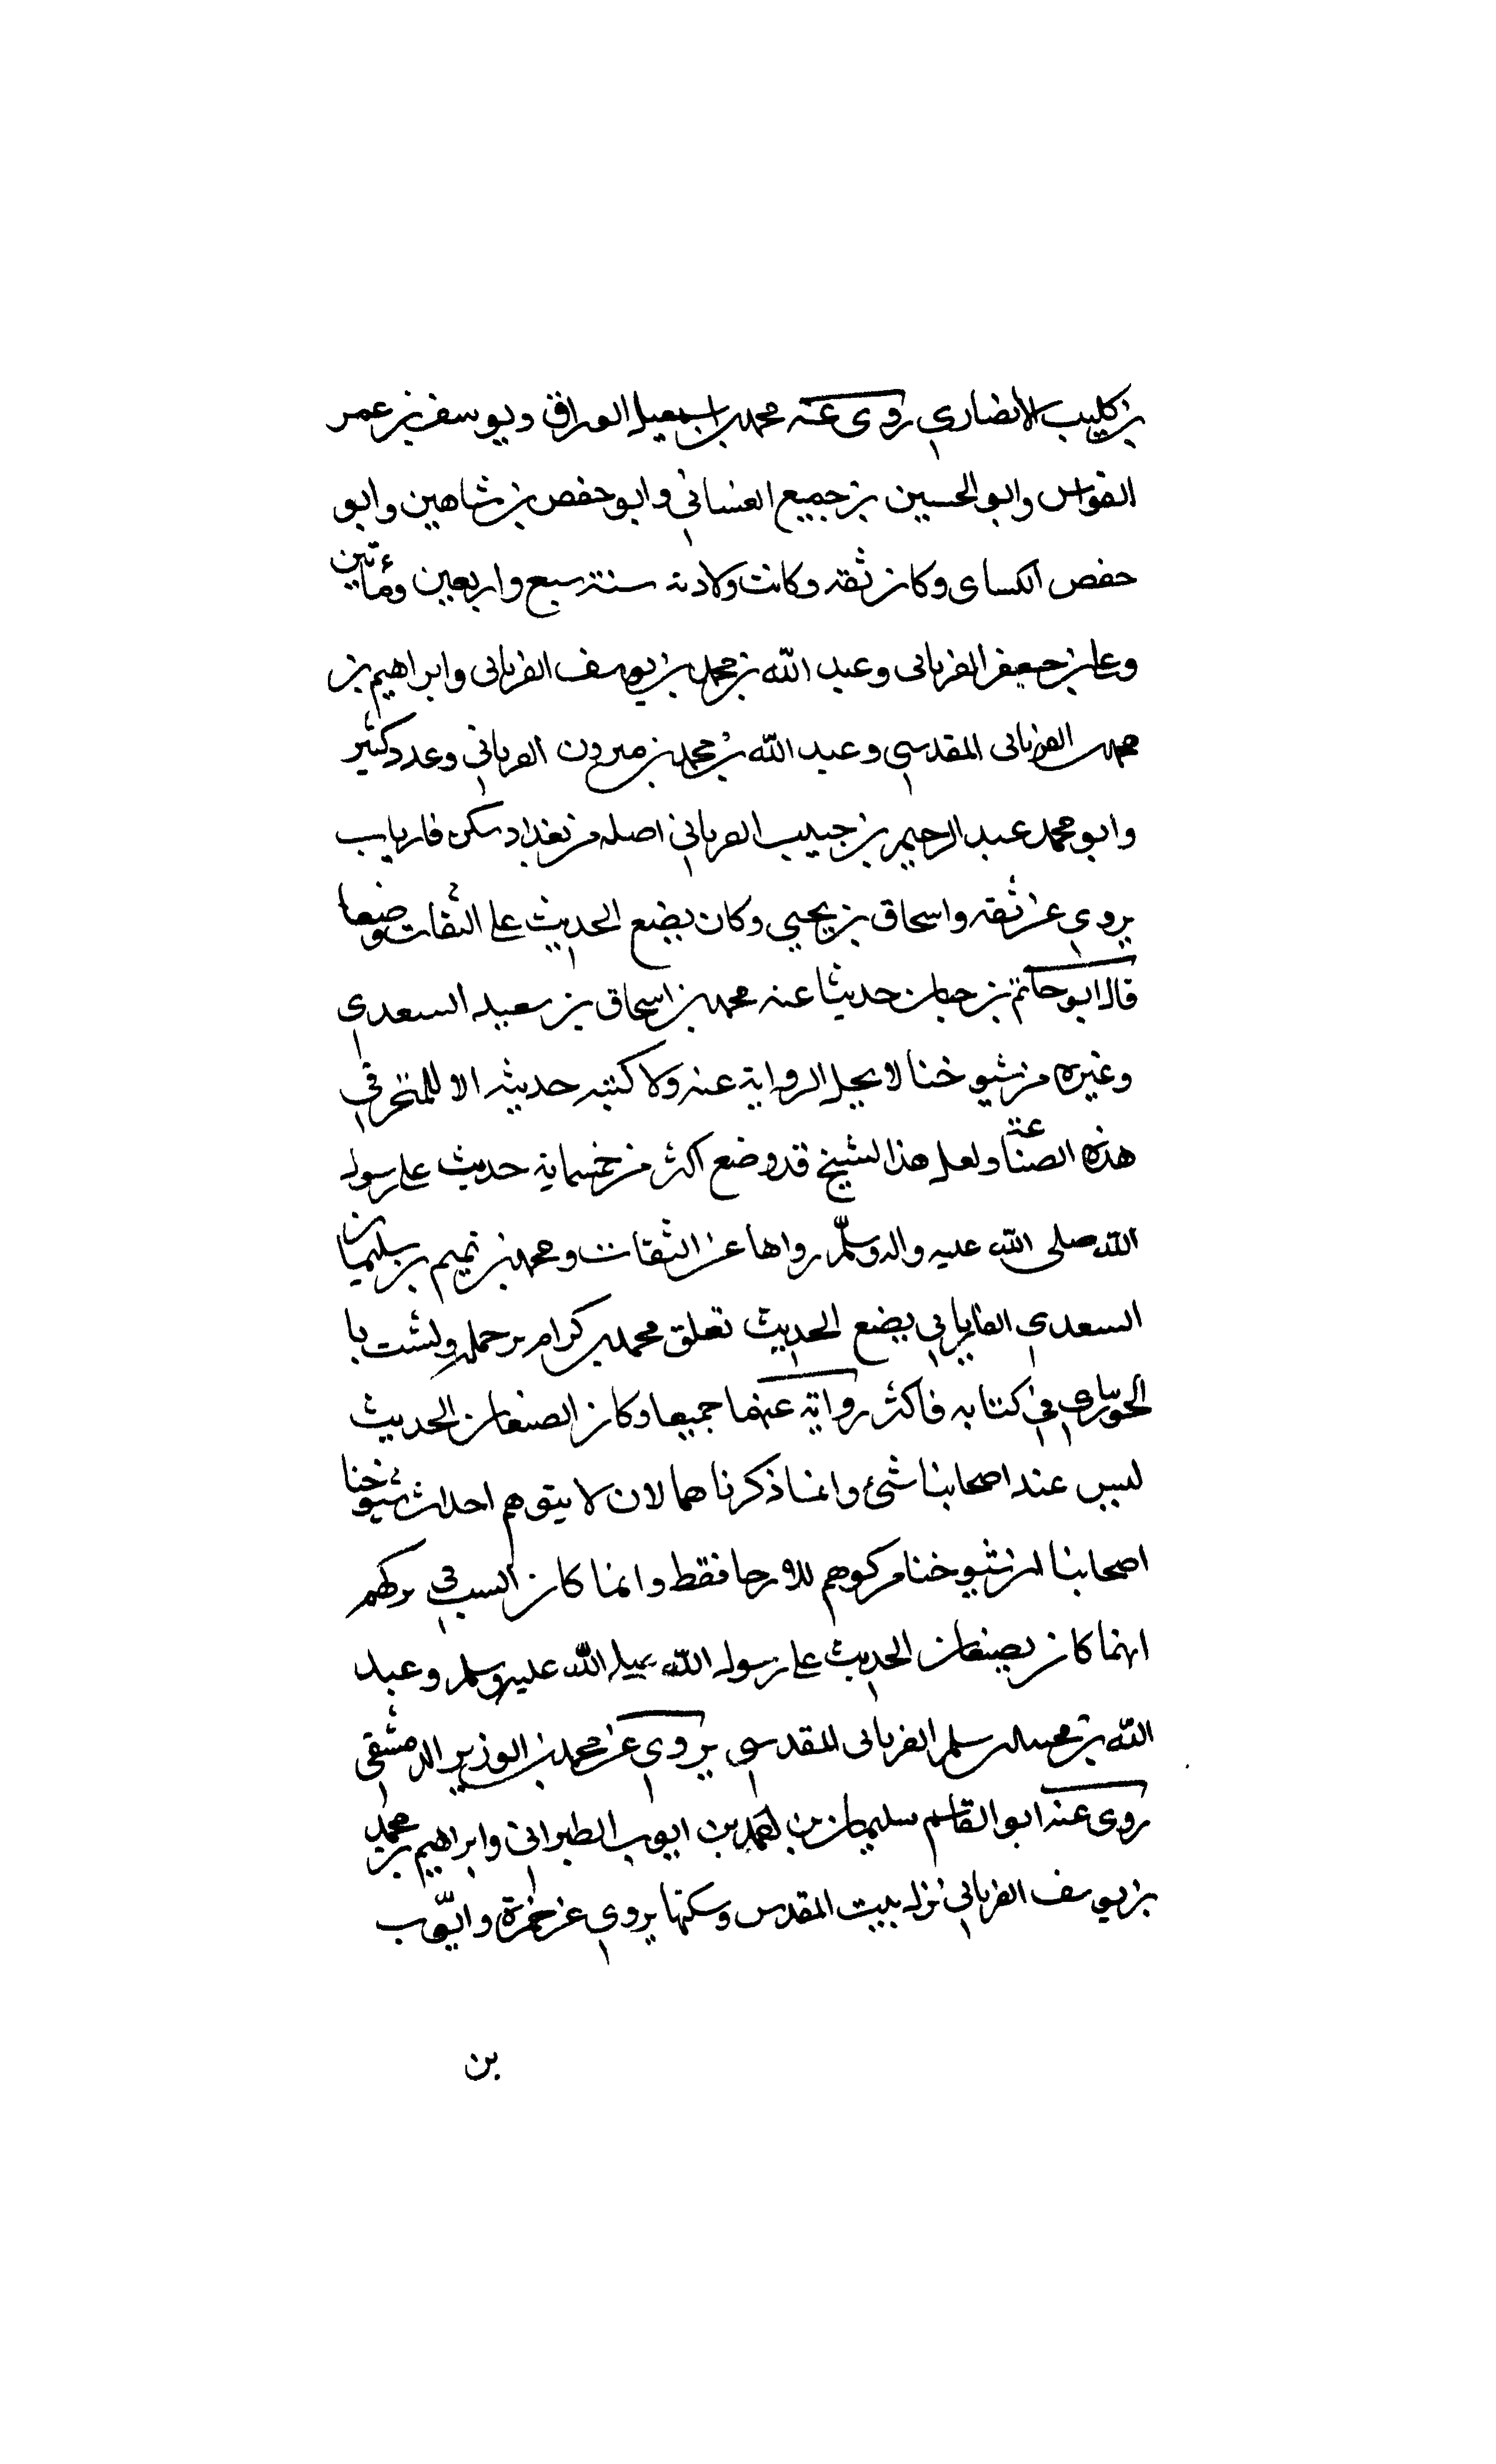 بن كليب الانصاري روى عنه محمد بن اسمعيل الوراق ويوسف بن عمر
القواس وابو الحسين بن جميع الغساني وابو حفص بن شاهين وابو
حفص الكساى وكان ثقة وكانت ولادته سنة سبع واربعين ومائتين
وعلى بن جعفر الفريابى وعبد الله بن محمد بن يوسف الفريابى وابراهيم بن
محمد الفريابى المقدسي وعبد الله بن محمد بن هرون الفريابي وعدد كثير
وابو محمد عبد الرحيم بن حبيب الفريابي اصله من بغداد سكن فارياب
يروي عن بقية واسحاق بن يحيي وكان يضع الحديث على الثقات وضعا
قال ابو حاتم بن حبان حديثا عنه محمد بن اسحاق بن سعيد السعدي
وغيره من شيوخنا لا يحل الرواية عنه ولا كتبه حديثه الا للمتبحر في
هذه الصناعة ولعل هذا الشيخ قد وضع اكثر من خمسماية حديث على رسول
الله صلى الله عليه واله وسلم رواها عن الثقات ومحمد بن تميم بن سليمان
السعدي الفاريابي يضع الحديث تعلق محمد بن كرام برجله وتشبث با
الجويباري في كتابه فاكثر رواية عنهما جميعا وكانا يضعان الحديث
ليس عند اصحابنا شئ وانما ذكرناهما لان لا يتوهم احداث شيوخنا
اصحابنا ان شيوخنا تركوهم للارجا فقط وانما كان السبب في تركهم
انهما كانا يضعان الحديث على رسول الله صلى الله عليه وسلم وعبد
الله بن محمد بن سلم الفريابى المقدسي يروي عن محمد بن الوزير الدمشقي
روى عنه ابو القاسم سليمان بن احمد بن ايوب الطبراني وابراهيم بن محمد
بن يوسف الفريابي نزل ببيت المقدس وسكنها يروي عن ضمرة وايوب
بن